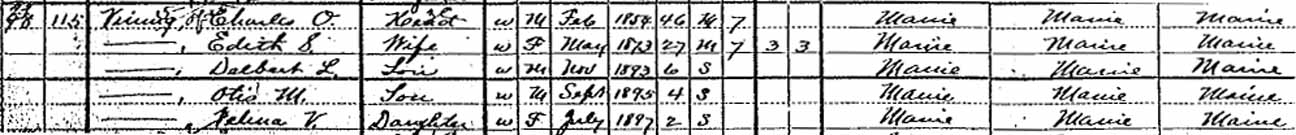 98 115 Vining, Charles O. Head W M Feb 1854 46 M 7 Maine Maine Maine
———, Edith S. Wife W F May 1873 27 M 7 3 3 Maine Maine Maine
———, Delbert L. Son W M Nov 1893 6 S Maine Maine Maine
———, Otis M. Son W M Sept 1895 4 S Maine Maine Maine
———, V. Daughter W F July 1897 2 S Maine Maine Maine